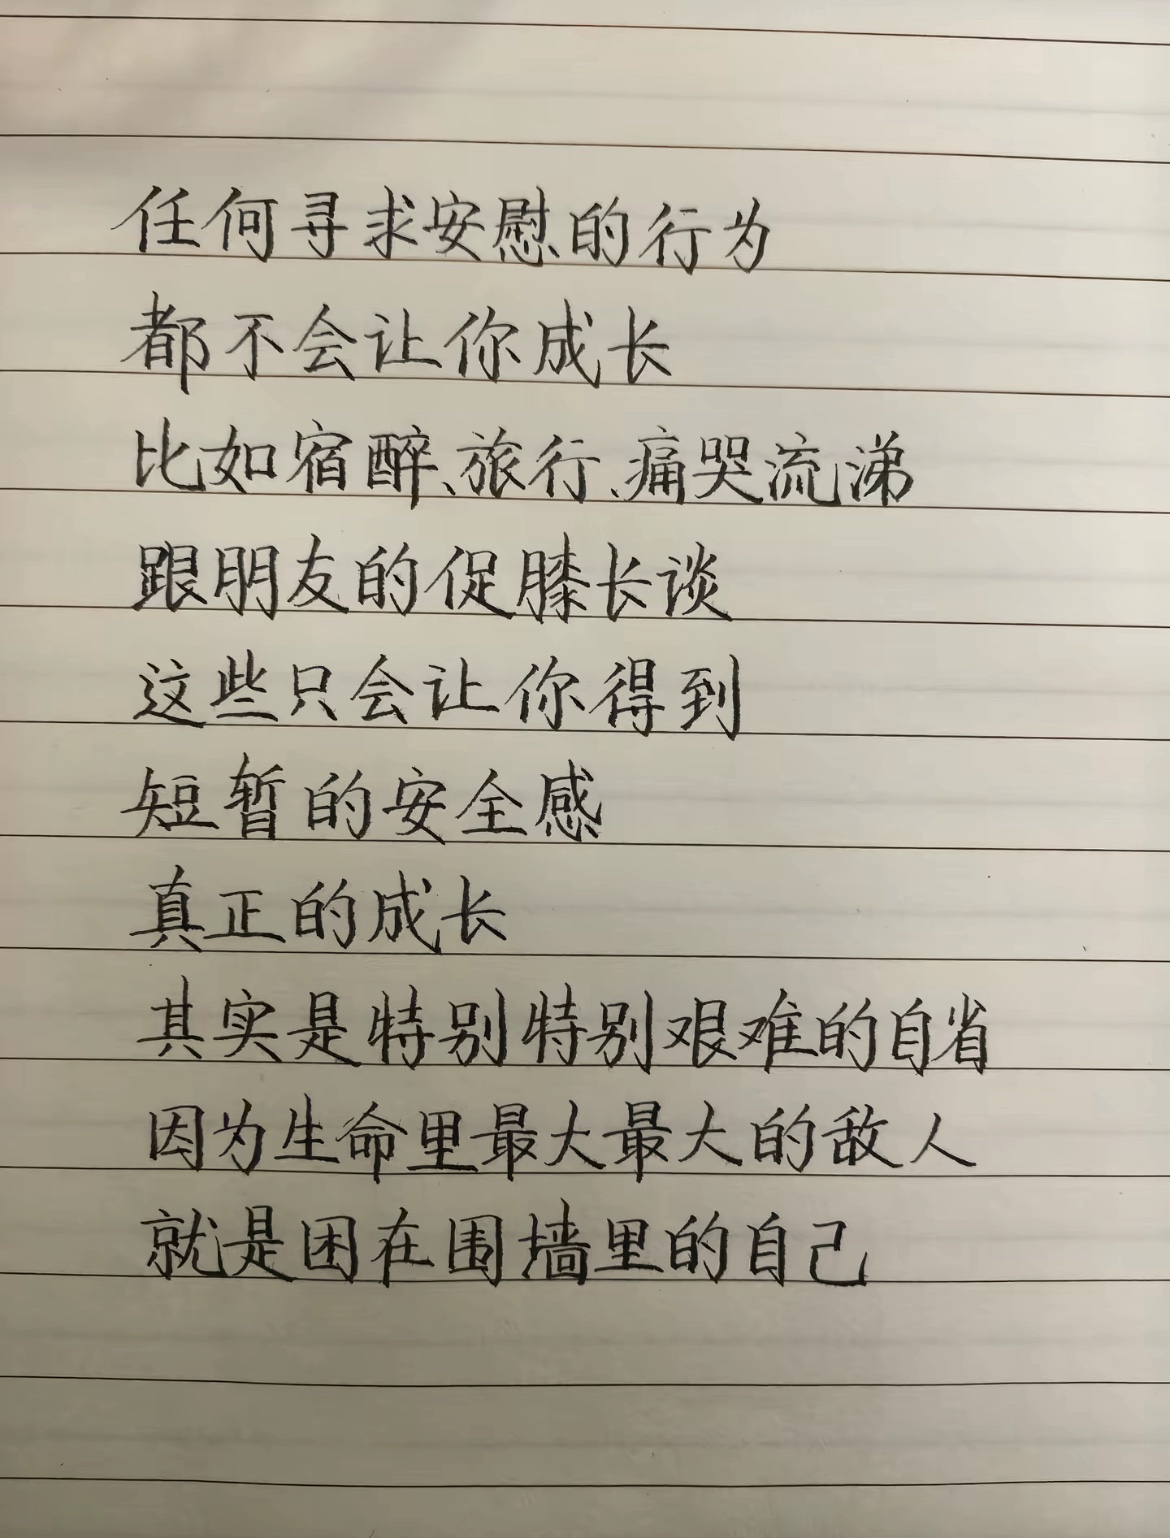 任何寻求安慰的行为
都不会让你成长
比如宿醉、旅行、痛哭流涕
跟朋友的促膝长谈
这些只会让你得到
短暂的安全感
真正的成长
其实是特别特别艰难的自省
因为生命里最大最大的敌人
就是困在围墙里的自己